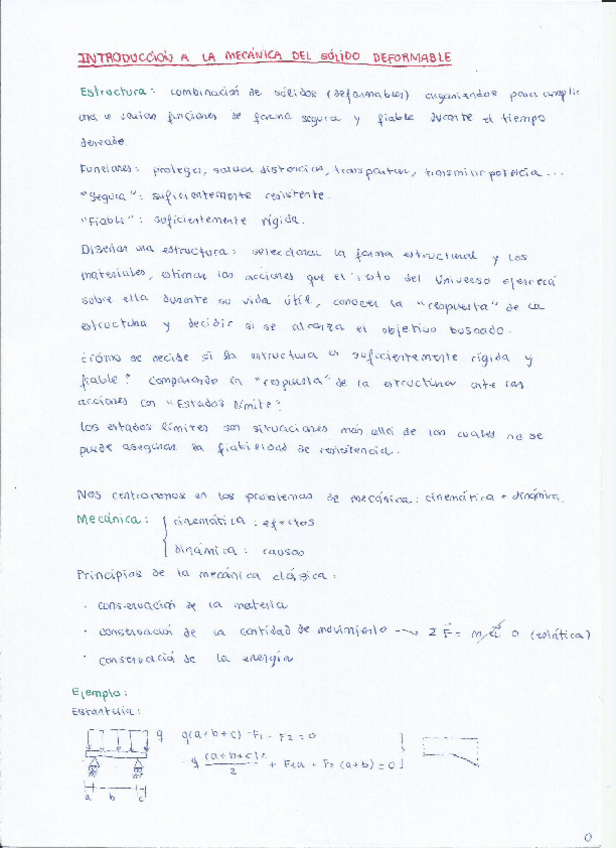 INTRODUCCIÓN A LA MECÁNICA DEL SÓLIDO DEFORMABLE
Estructura: combinación de sólidos (deformables) organizandos para cumplir
una o varias funciones de forma segura y fiable durante el tiempo
deseado.
Funciones: proteger, salvar distancias, transportar, transmitir potencia...
"Segura": suficientemente resistente.
"Fiable": suficientemente rígida.
Diseñar una estructura: seleccionar la forma estructural y los
materiales, estimar las acciones que el resto del Universo ejercerá
sobre ella durante su vida útil, conocer la "respuesta" de la
estructura y decidir si se alcanza el objetivo buscado.
¿Cómo se decide si la estructura es suficientemente rígida y
fiable? Comparando la "respuesta" de la estructura ante las
acciones con "Estados límite".
Los estados límites son situaciones más allá de las cuales no se
puede asegurar la fiabilidad de resistencia.
Nos centraremos en los problemas de mecánica: cinemática + dinámica.
Mecánica: { cinemática: efectos
dinámica: causas
Principios de la mecánica clásica:
· conservación de la materia
· conservación de la cantidad de movimiento → Σ F = m a 0 (estática)
· conservació de la energía
Ejemplo:
Estantería:
q q(a+b+c) - F1 - F2 = 0
- q (a+b+c)² / 2 + F1a + F2 (a+b) = 0
a b c
0